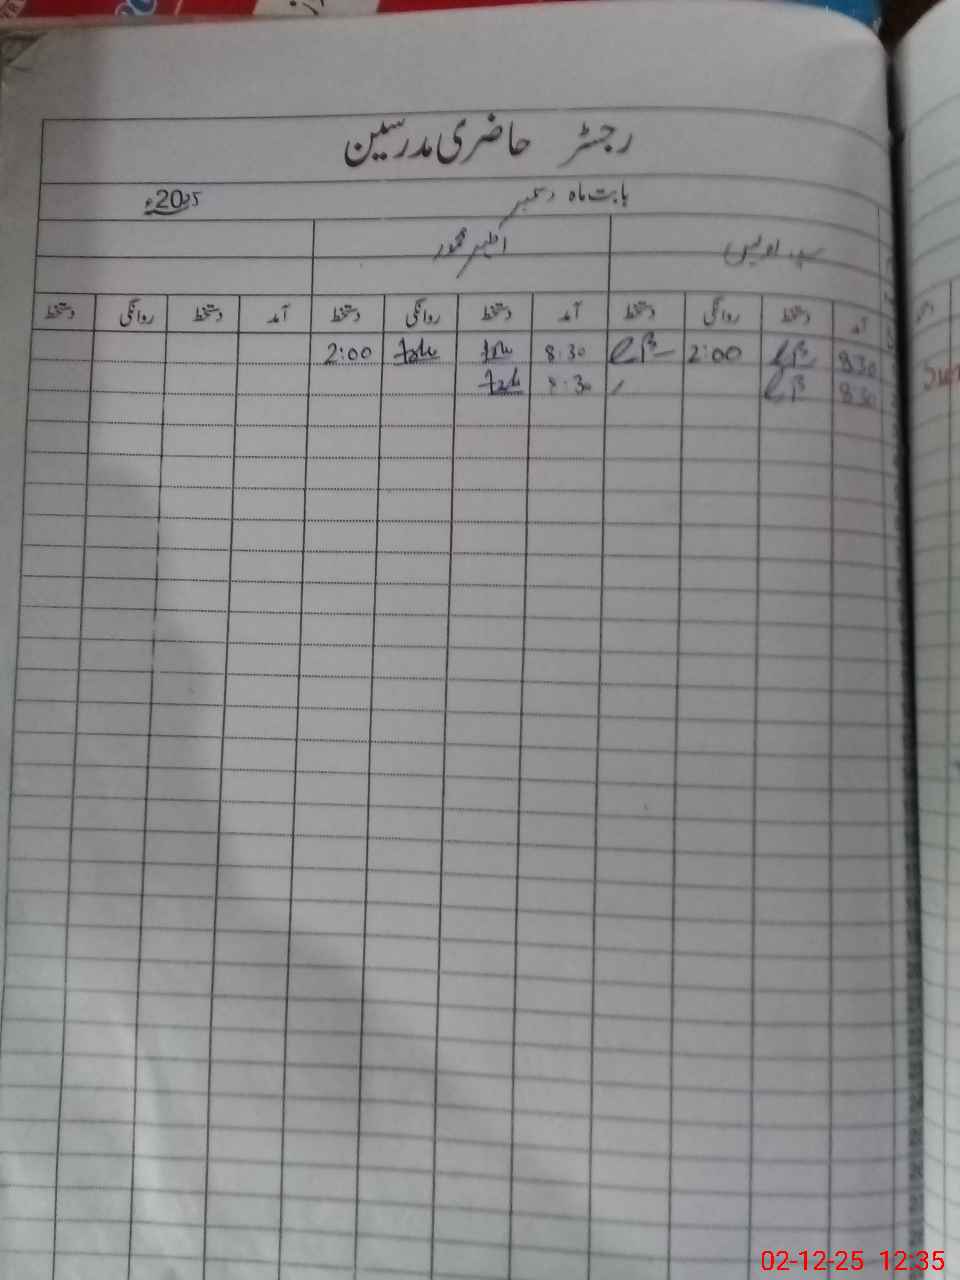 رجسٹر حاضری مدرسین
بابت ماہ دسمبر 2025ء
اویس اظہر محمود
آمد دستخط روانگی دستخط آمد دستخط روانگی دستخط آمد دستخط روانگی دستخط
8:30 2:00 8:30 2:00
8:30 8:30
Sun
02-12-25 12:35